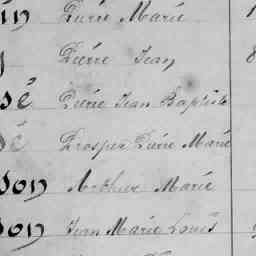 in Pierre Marie 1
Pierre Jean 8
sé Pierre Jean Baptiste
sé Prosper Pierre Marie
son Arthur Marie
son Jean Marie Louis